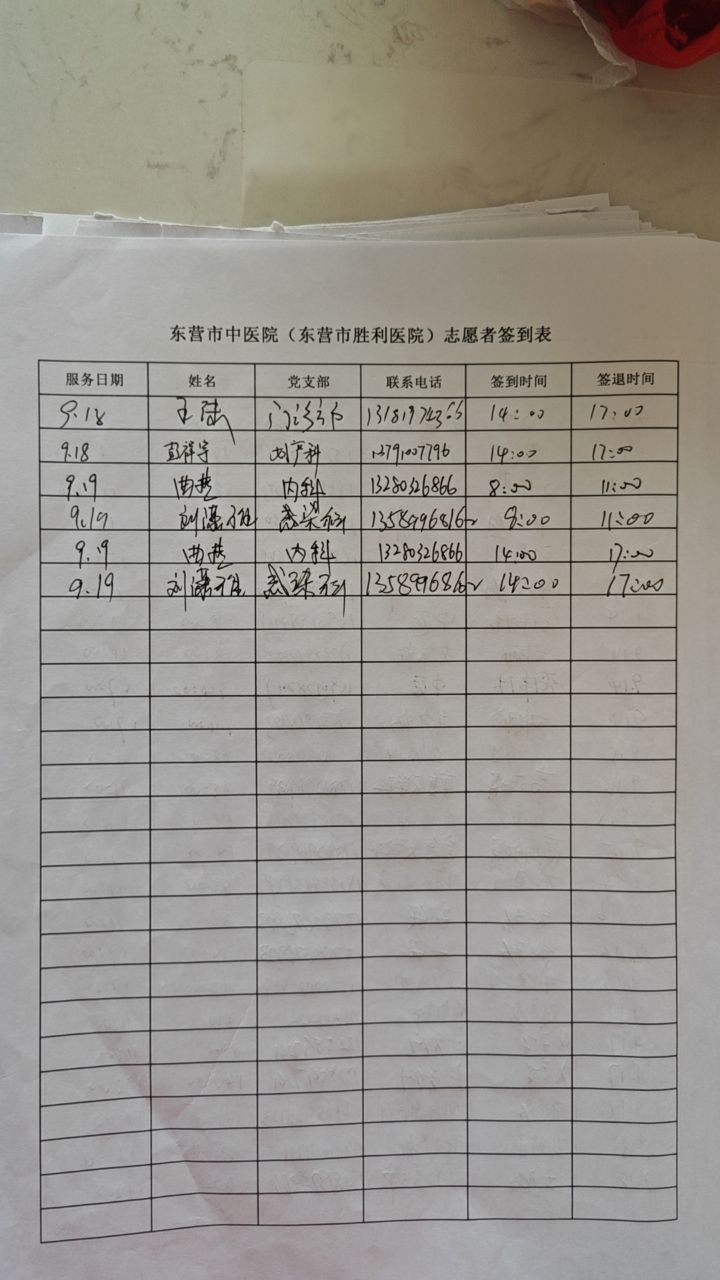 东营市中医院（东营市胜利医院）志愿者签到表
服务日期 姓名 党支部 联系电话 签到时间 签退时间
9.18 王陆 门诊支部 13181974366 14:00 17:00
9.18 彭祥宇 妇产科 13791007796 14:00 17:00
9.19 曲燕 内科 13280326866 8:00 11:00
9.19 刘潇 感染科 13589968162 8:00 11:00
9.19 曲燕 内科 13280326866 14:00 17:00
9.19 刘潇 感染科 13589968162 14:00 17:00